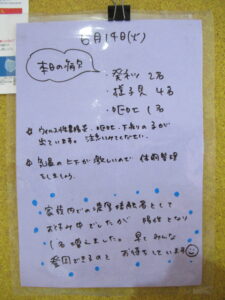 6月14日(火)
本日の病欠
・発熱 2名
・様子見 4名
・嘔吐 1名
ウイルス性胃腸炎、嘔吐、下痢の子が
出ています。注意してみてください。
気温の上下が激しいので 体調管理
をしましょう。
家族内での濃厚接触者として
お休み中でしたが 陽性となり
1名増えました。早くみんな
登園できるのを お待ちしています